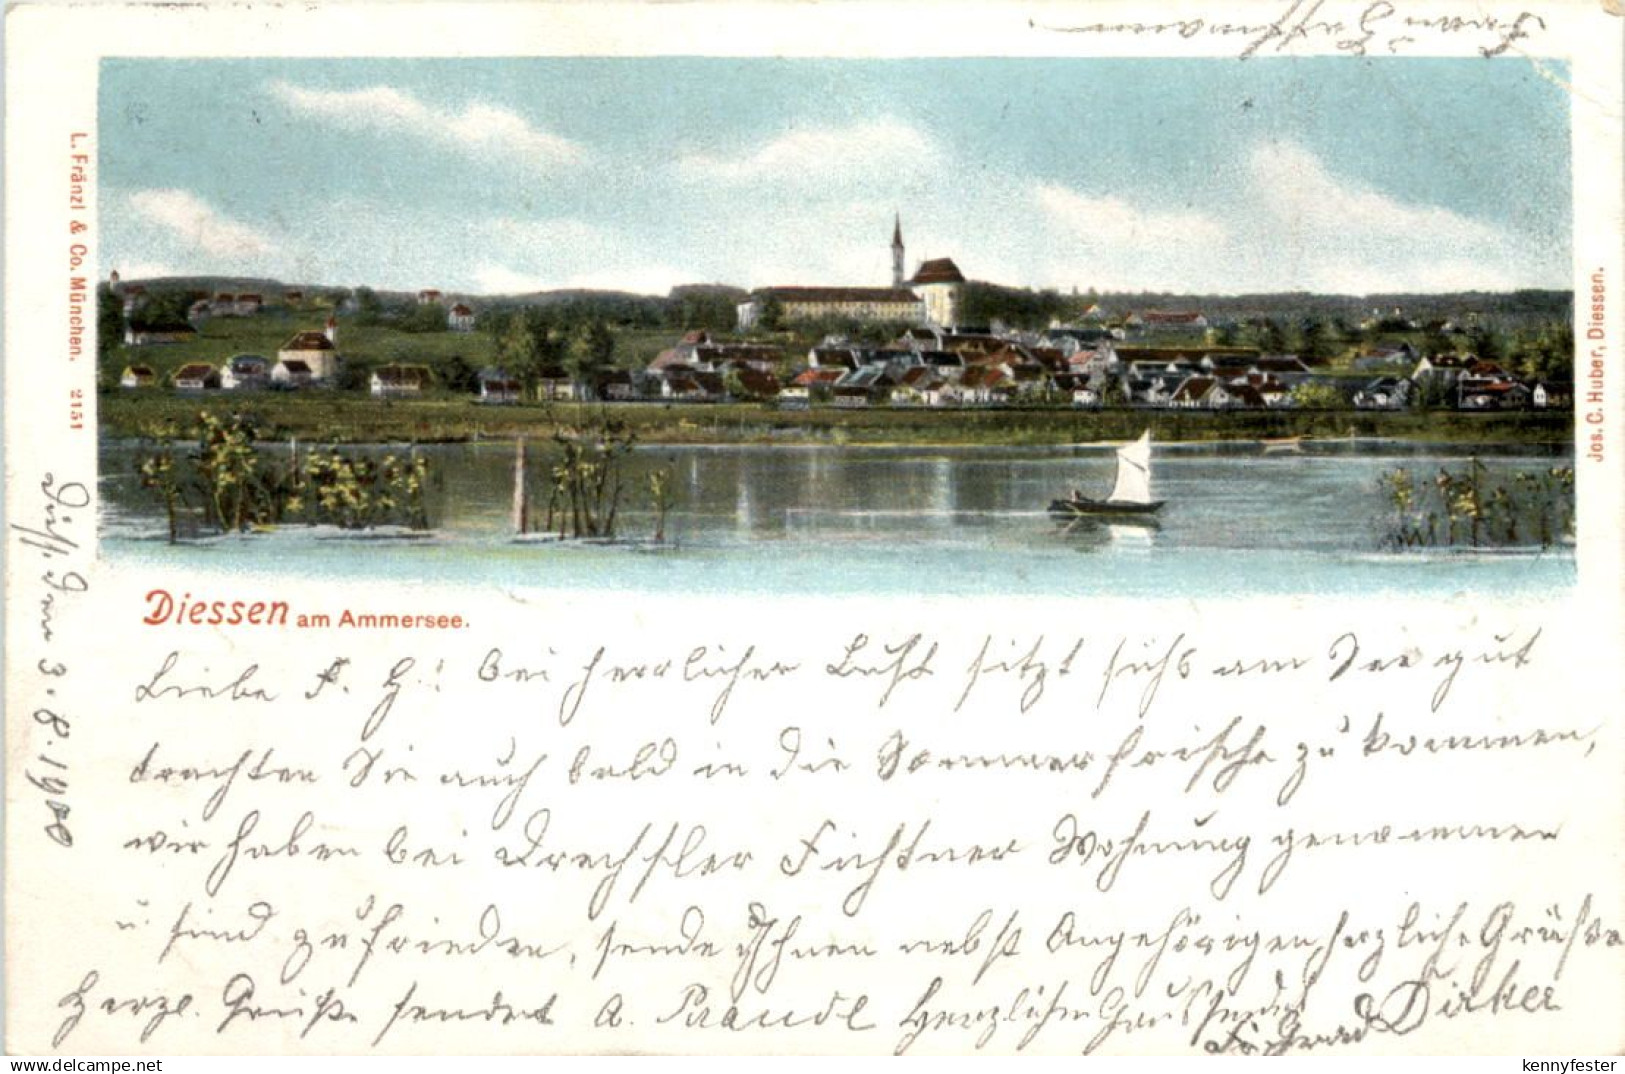 L. Fränzl & Co. München. 2151
Jos. C. Huber, Diessen.
Diessen am Ammersee.
3. 8. 1900
Liebe F. H.! bei herrlicher Luft sitzt sichs am See gut
trachten Sie auch bald in die Sommerfrische zu kommen,
wir haben bei Drechsler Fichtner Wohnung genommen
u. sind zufrieden, sende Ihnen nebst Angehörigen herzliche Grüße
Herzl. Grüße sendet A. Prandl Herzlichen Gruss sendet
delcampe.net
kennyfester